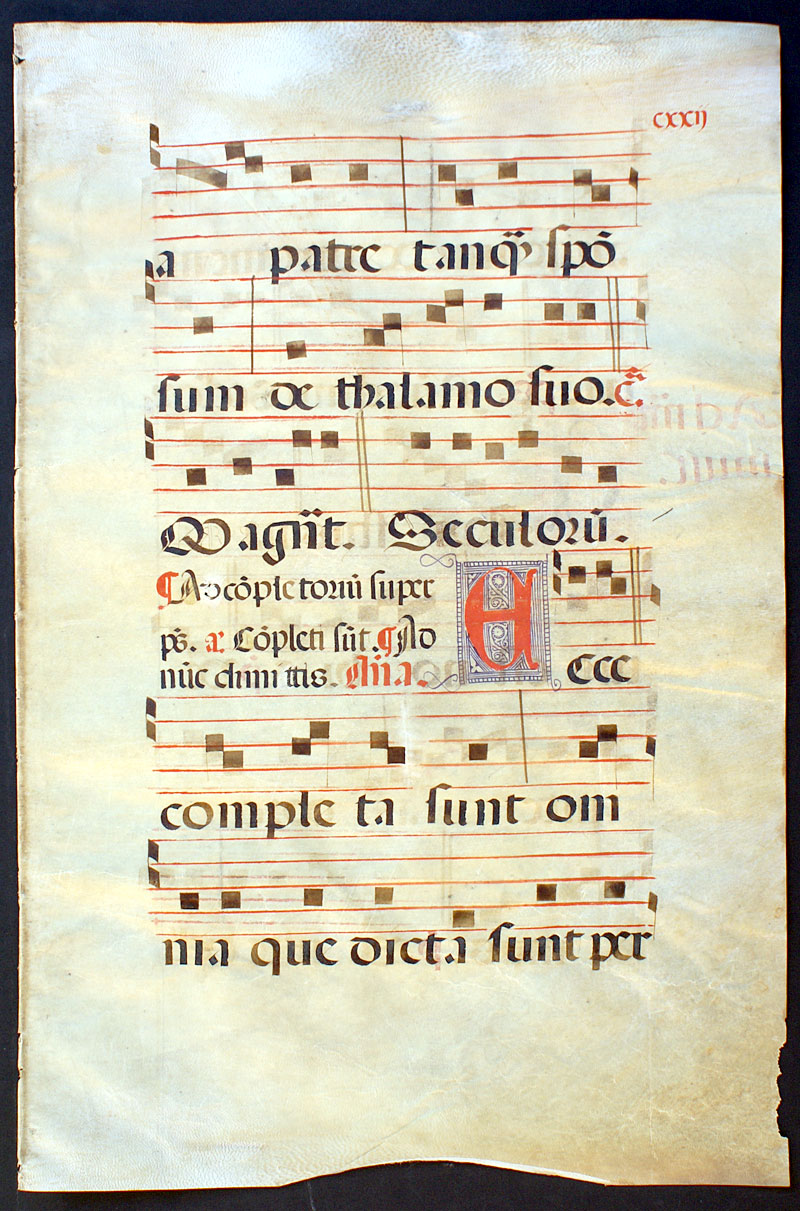 cxxij
a patre tanq̃ spõ
sum de thalamo suo. c̃.
Magñt. Seculorũ.
¶ Ad cõpletoriũ super
ps̃. a Cõpleti sũt. ¶ Ad
nũc dimittis. Añа. Eccc
comple ta sunt om
nia que dicta sunt per